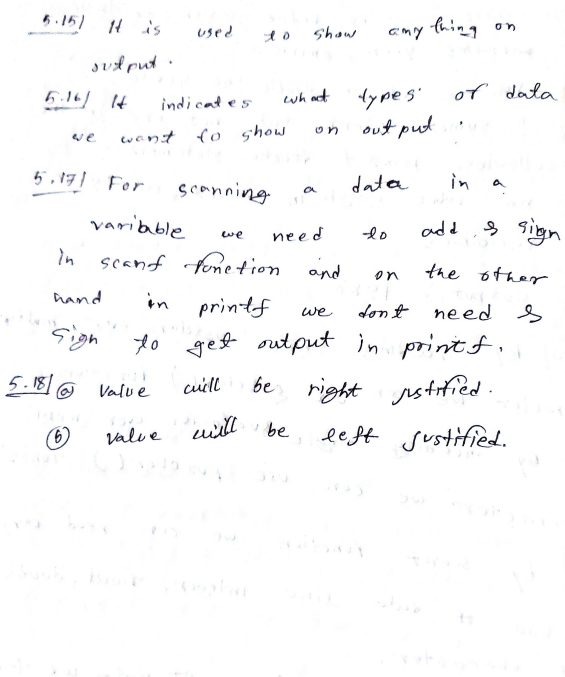 5.15/ It is used to show any thing on
output.
5.16/ It indicates what types of data
we want to show on output.
5.17/ For scanning a data in a
varibable we need to add & sign
in scanf fonction and on the other
hand in printf we dont need &
sign to get output in printf.
5.18/ (a) value will be right justified.
(b) value will be left justified.